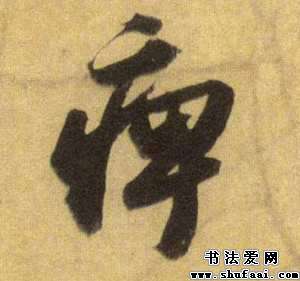 痺
书法爱网
www.shufaai.com